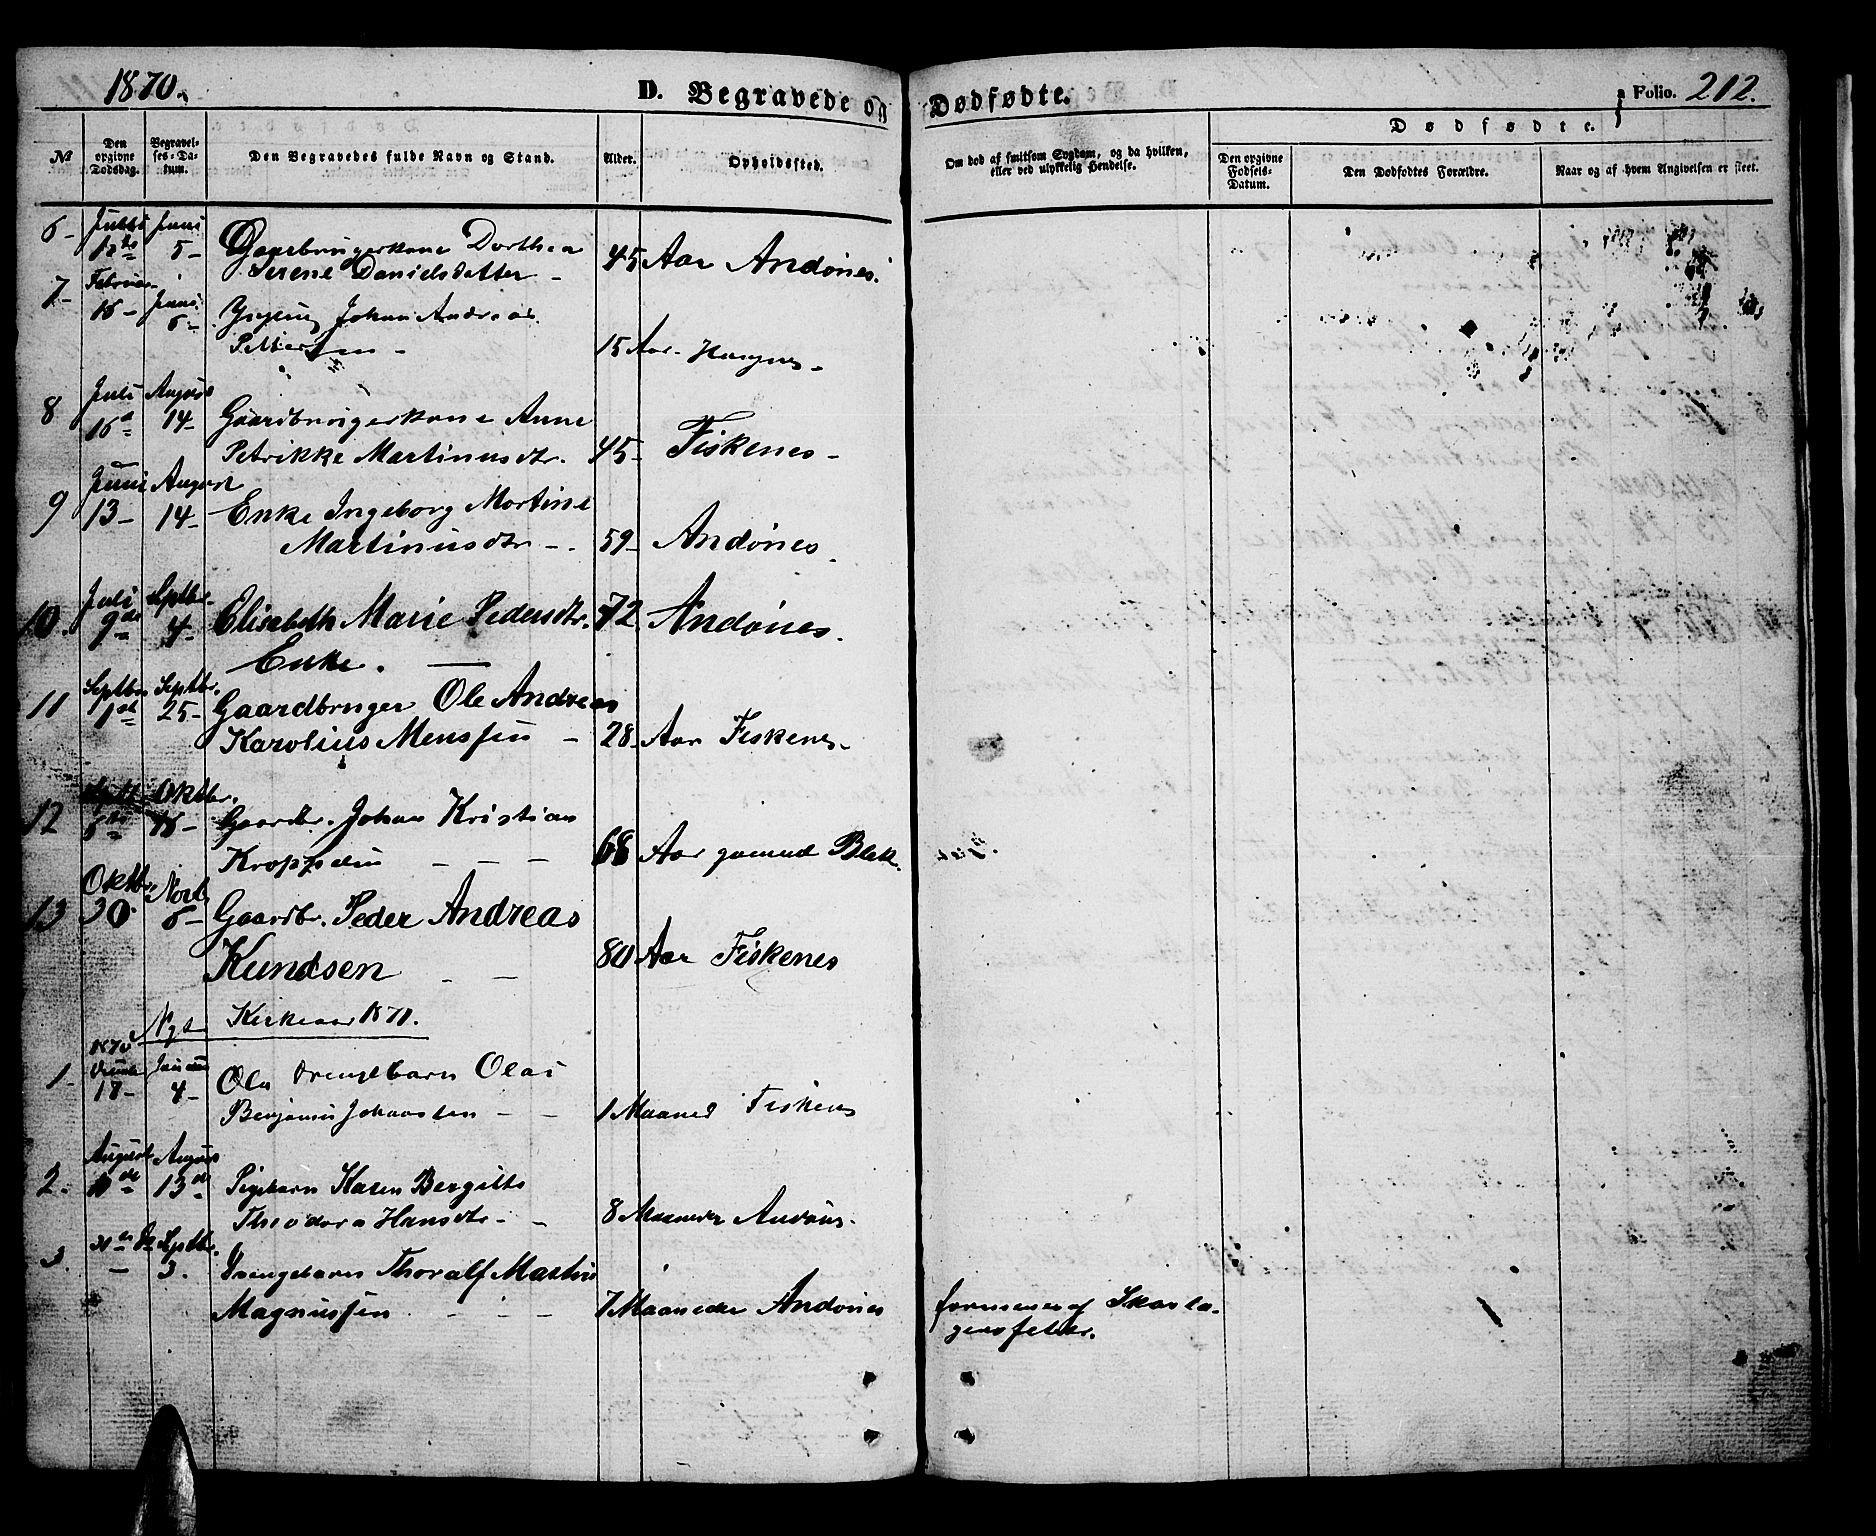 1870.
D. Begravede og Dødfødte.
Folio. 212.
No
Den opgivne Dødsdag.
Begravelses-Datum.
Den Begravedes fulde Navn og Stand.
Alder.
Opholdssted.
Om død af smitsom Sygdom, og da hvilken, eller ved ulykkelig Hendelse.
Dødfødte.
Den opgivne Fødsels-Datum.
Den Dødfødtes Forældre.
Naar og af hvem Angivelsen er skeet.
6- Juni 5- Dorthea
Serene Danielsdatter - 45 Aar Andönes.
7- Februar 16- Juni 6- Johan Andreas
15 Aar
8 Juli 16 August 14- Gaardbrugerkone Anne
Petrikke Martinusdtr. 45- Fiskenes-
9 Juni 13- August 14- Enke Ingeborg Martine
Martinusdtr -. 59- Andönes.
10. Juli 9 Septbr. 4- Elisabeth Marie Pedersdtr. 72. Andönes.
Enke.
11 Septbr 1st Septbr. 25- Gaardbruger Ole Andreas
Karolius Monssen - 28- Aar Fiskenes-
12 Septbr Oktbr. Gaardbr. Johan Kristian
68 Aar Blek.
13 Oktbr 30. Novb 6- Gaardbr. Peder Andreas
Kundsen - - 80 Aar Fiskenes
Nyt Kirkeaar 1871.
1- 1870 18- Januar 4- Drengebarn Olai
Benjamin Johansen - - 1 Maaned Fiskenes
2. August August 13de Pigebarn Karen Bergitte
Theodora Hansdtr- - 8 Maaneder Andönes.
3. Septbr. 3. Drengebarn Thoralf Martin
Magnussen - - - 7 Maaneder Andönes af Skarla-
gensfeber.